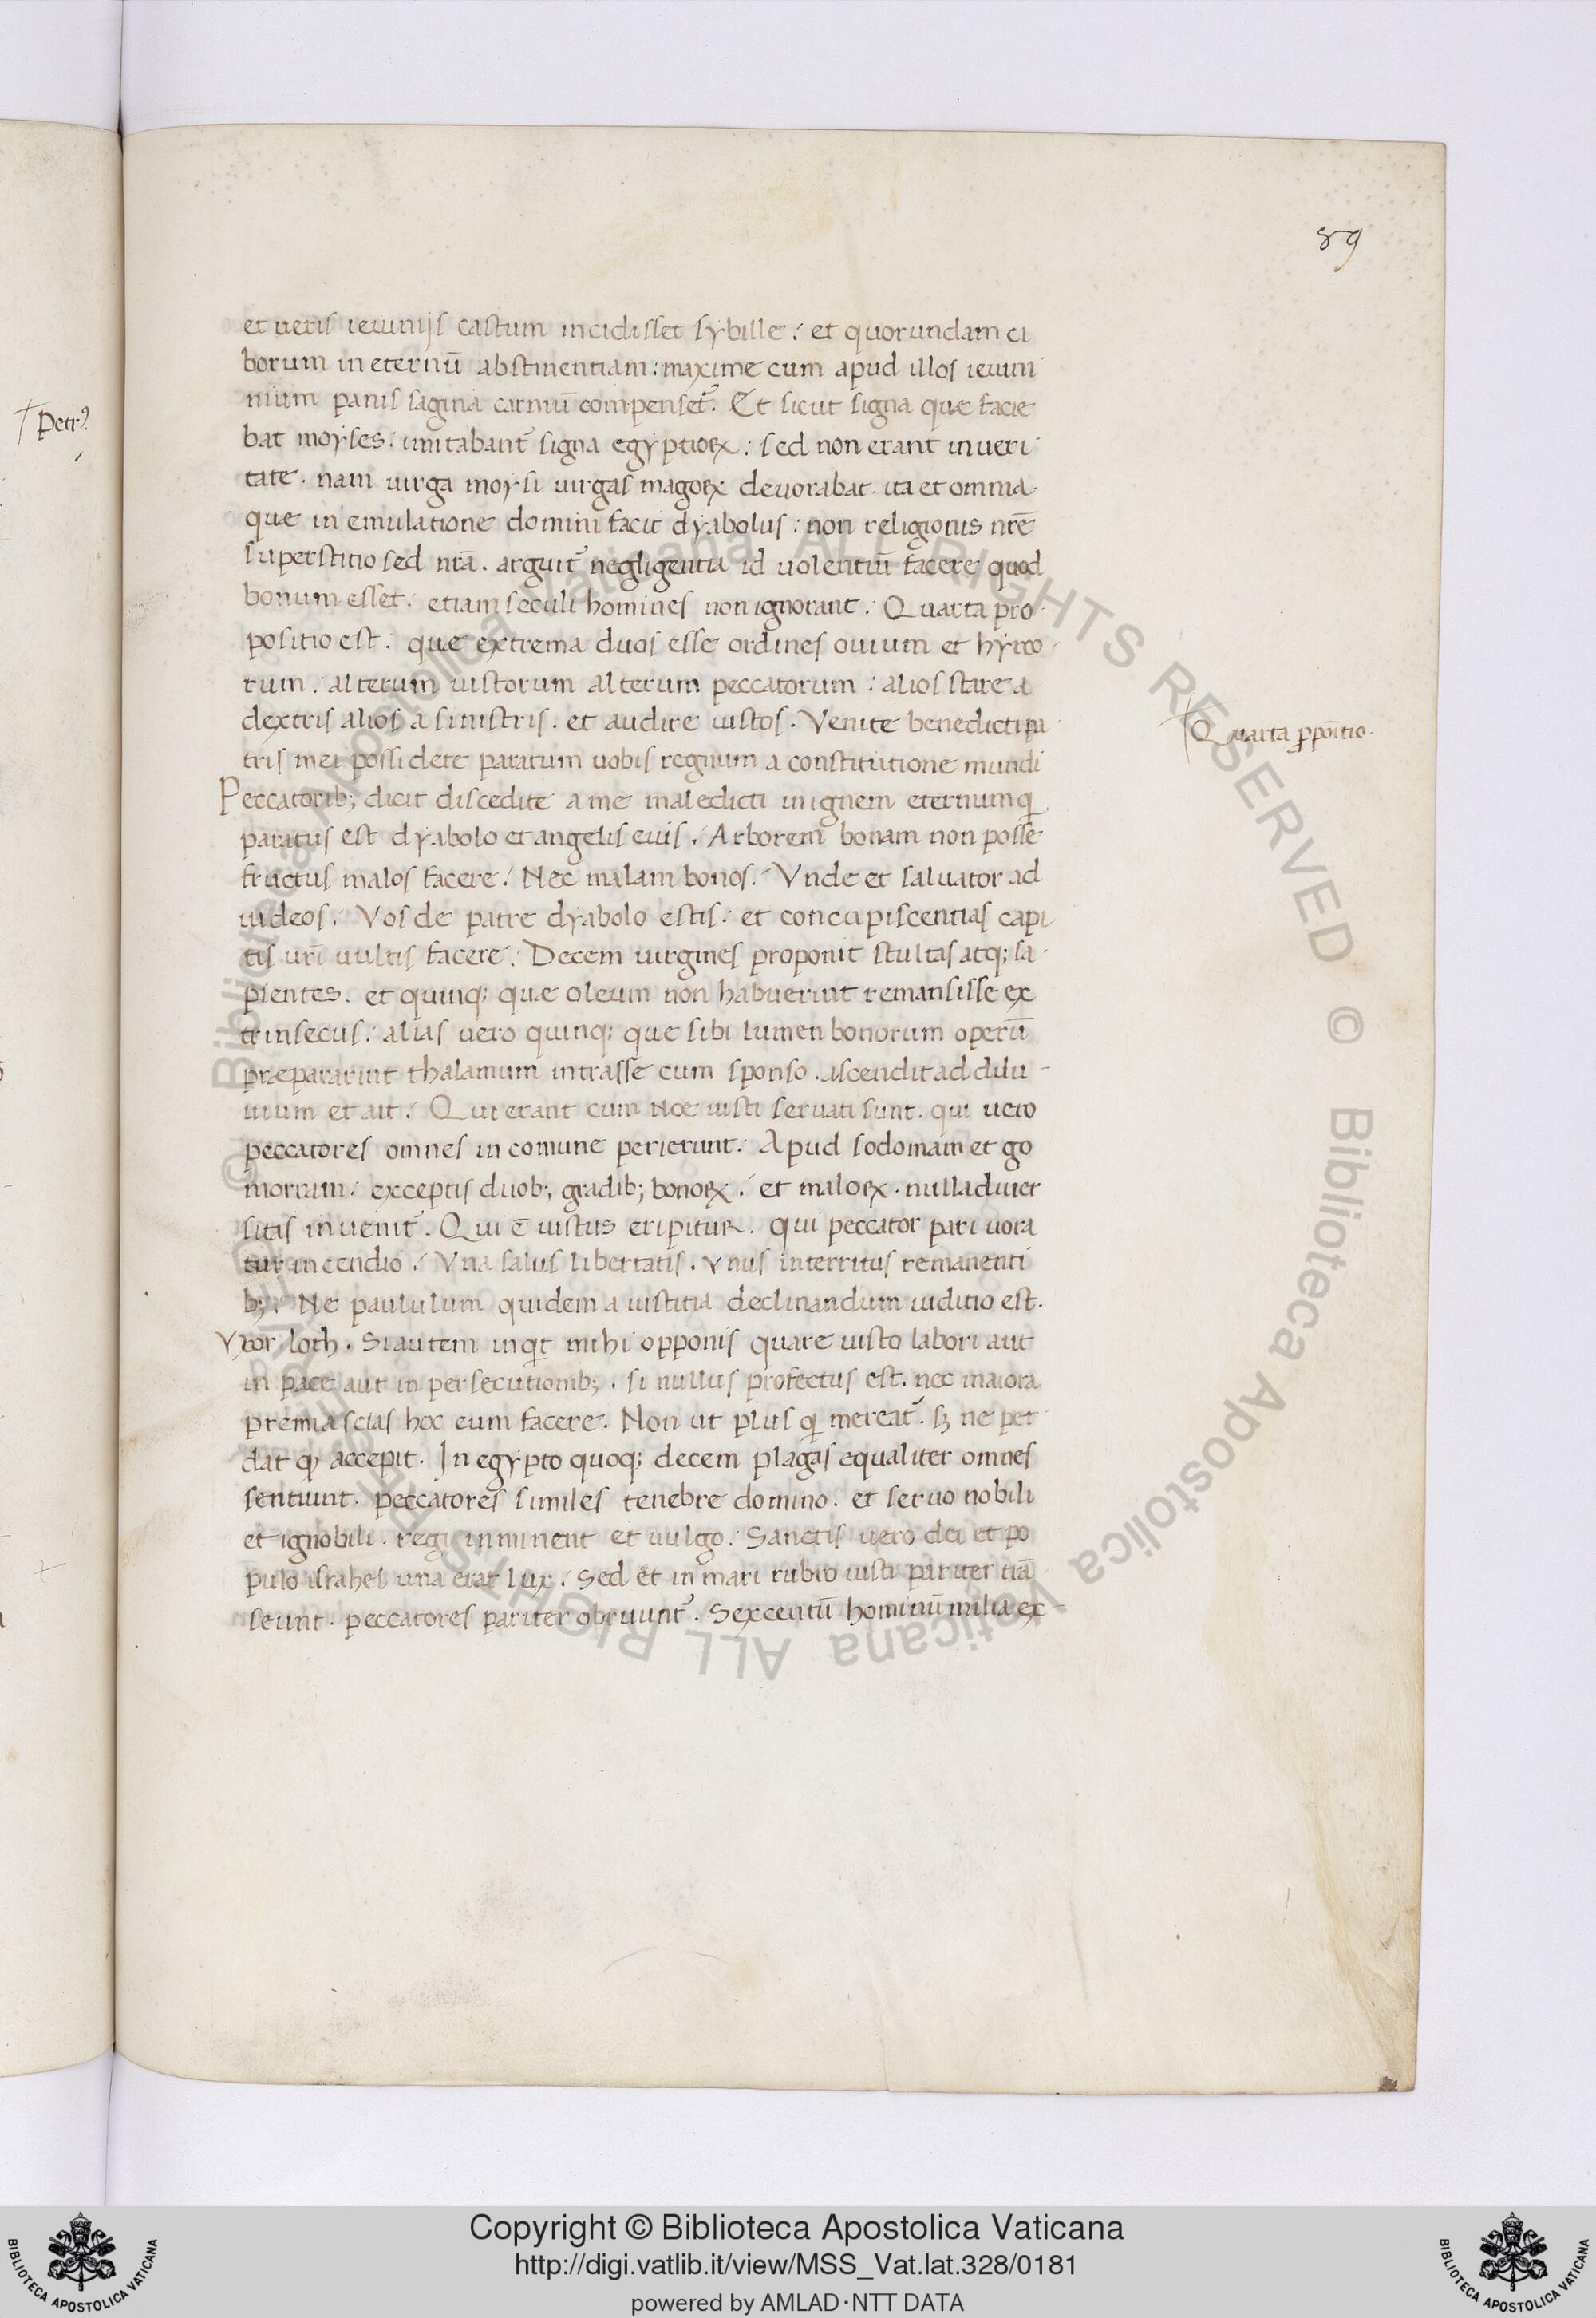 89
Petr⁹.
et ueris ieiunijs castum incidisset sybille: et quorundam ci
borum in eternū abstinentiam: maxime cum apud illos ieiuni
nium panis sagina carniū compenset᷑. Et sicut signa que facie
bat moyses. imitabant᷑ signa egyptioꝝ: sed non erant in ueri
tate. nam uirga moysi uirgas magoꝝ deuorabat. ita et omnia
que in emulatione domini facit dyabolus: non religionis nrē
superstitio sed nrā. arguit᷑ negligentia id uolentiū facere quod
bonum esset. etiam seculi homines non ignorant. Quarta pro
positio est. que extrema duos esse ordines ouium et hyrco
rum. alterum iustorum alterum peccatorum: alios stare a
dextris alios a sinistris. et audire iustos. Venite benedicti pa
tris mei possidete paratum uobis regnum a constitutione mundi
Quarta ꝓpōitio.
Peccatorib; dicit discedite a me maledicti in ignem eternum q
paratus est dyabolo et angelis eius. Arborem bonam non posse
fructus malos facere. Nec malam bonos. Vnde et saluator ad
iudeos. Vos de patre dyabolo estis. et concupiscentias capi
tis urī uultis facere. Decem uirgines proponit stultas atq; sa
pientes. et quinq; quæ oleum non habuerint remansisse ex
trinsecus. alias uero quinq; que sibi lumen bonorum operū
præpararint thalamum intrasse cum sponso. ascendit ad dilu-
uium et ait. Qui erant cum Noe iusti seruati sunt. qui uero
peccatores omnes in comune perierunt. Apud sodomam et go
morram. exceptis duob; gradib; bonoꝝ. et maloꝝ. nulla diuer
sitas inuenit᷑. Qui ē iustus eripitur. qui peccator pari uora
tur incendio. Vna salus libertatis. vnus interritus remanenti
b; Ne paululum quidem a iustitia declinandum iuditio est.
Vxor loth. Si autem inqͥt mihi opponis quare iusto labori aut
in pace aut in persecutionib;. si nullus profectus est. nec maiora
premia scias hoc eum facere. Non ut plus q mereat᷑. sꝫ ne per
dat qͩ accepit. In egypto quoq; decem plagas equaliter omnes
sentiunt. peccatores similes tenebre domino. et seruo nobili
et ignobili. regi inminent et uulgo. Sanctis uero dei et po
pulo israhel una erat lux. Sed et in mari rubro iusti pariter trā
seunt. peccatores pariter obruunt᷑. Sexcentū hominū milia ex-
© Biblioteca Apostolica Vaticana ALL RIGHTS RESERVED © Biblioteca Apostolica Vaticana ALL RIGHTS RESERVED
Copyright © Biblioteca Apostolica Vaticana
http://digi.vatlib.it/view/MSS_Vat.lat.328/0181
powered by AMLAD·NTT DATA
BIBLIOTECA APOSTOLICA VATICANA
BIBLIOTECA APOSTOLICA VATICANA